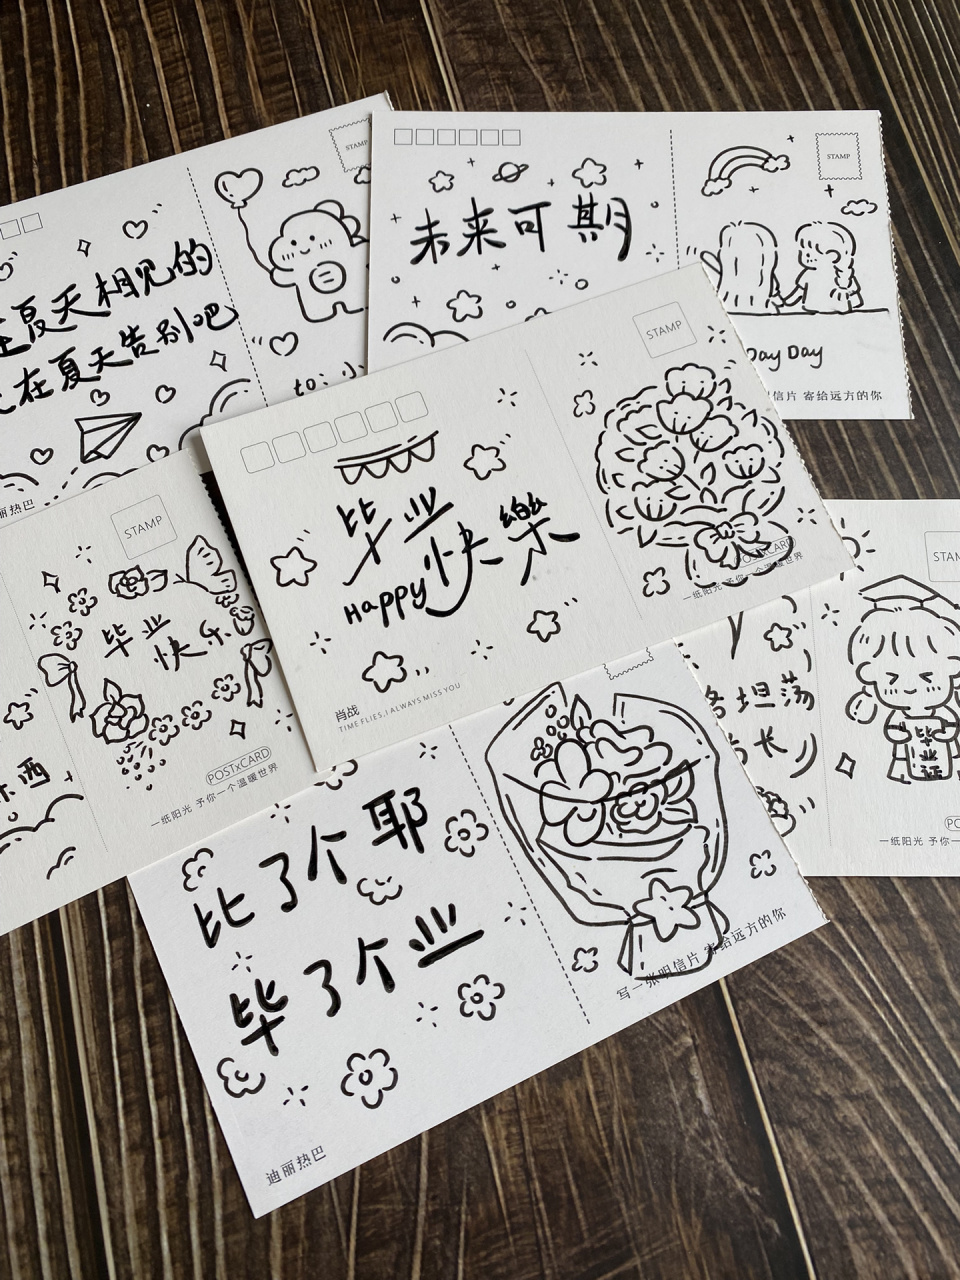 夏天相见的
在夏天告别吧
to:
迪丽热巴
STAMP
未来可期
STAMP
Day Day
信片 寄给远方的你
STAMP
毕业
快樂
Happy
肖战
TIME FLIES, I ALWAYS MISS YOU
POSTxCARD
一纸阳光 予你一个温暖世界
STAMP
毕业
快乐
西
POSTxCARD
一纸阳光 予你一个温暖世界
坦荡
长
毕
业
证
一纸阳光 予你一
比了个耶
毕了个业
迪丽热巴
写一张明信片 寄给远方的你